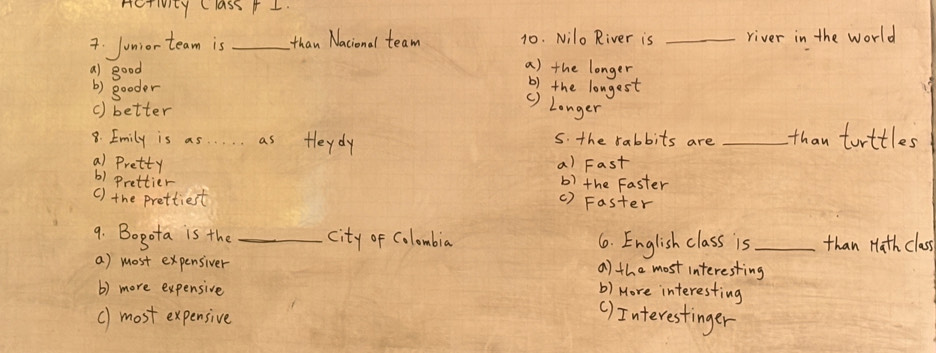 Activity Class # I.
7. Junior team is ______ than Nacional team
a) good
b) gooder
c) better
8. Emily is as ..... as Heydy
a) Pretty
b) Prettier
c) the prettiest
9. Bogota is the ______ city of Colombia
a) most expensiver
b) more expensive
c) most expensive
10. Nilo River is ______ river in the world
a) the longer
b) the longest
c) Longer
5. the rabbits are ______ than turttles
a) Fast
b) the Faster
c) Faster
6. English class is ______ than Math class
a) the most interesting
b) More interesting
c) Interestinger